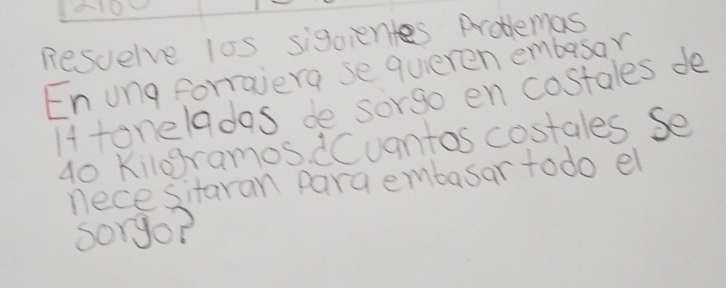 Resuelve los siguientes Problemas
En una forrajera se quieren embasar
14 toneladas de sorgo en costales de
40 Kilogramos. ¿Cuantos costales se
necesitaran para embasar todo el
sorgo?